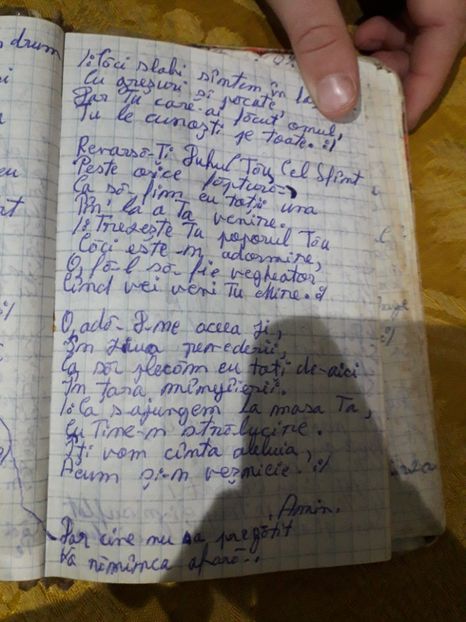 drum
/: Căci slabi sîntem în
Cu greșuri și păcate,
Dar Tu care-ai făcut omul,
Tu le cunoști pe toate. :/
Revarsă-Ți Duhul Tău Cel Sfînt
Peste orice făptură
Ca să fim cu toții una
Pîn' la a Ta venire.
/: Trezește Tu poporul Tău
Căci este-n adormire,
O, fă-l să fie veghetor
Cînd vei veni Tu Mire. :/
O, adă Dne acea zi,
În ziua revederii,
Ca să plecăm cu toți de-aici
În țara mîngîierii.
/: Ca s-ajungem la masa Ta,
Cu Tine-n strălucire.
Îți vom cînta aleluia,
Acum și-n veșnicie. :/
Amin.
Dar cine nu s-a pregătit
Va rămînea afară..